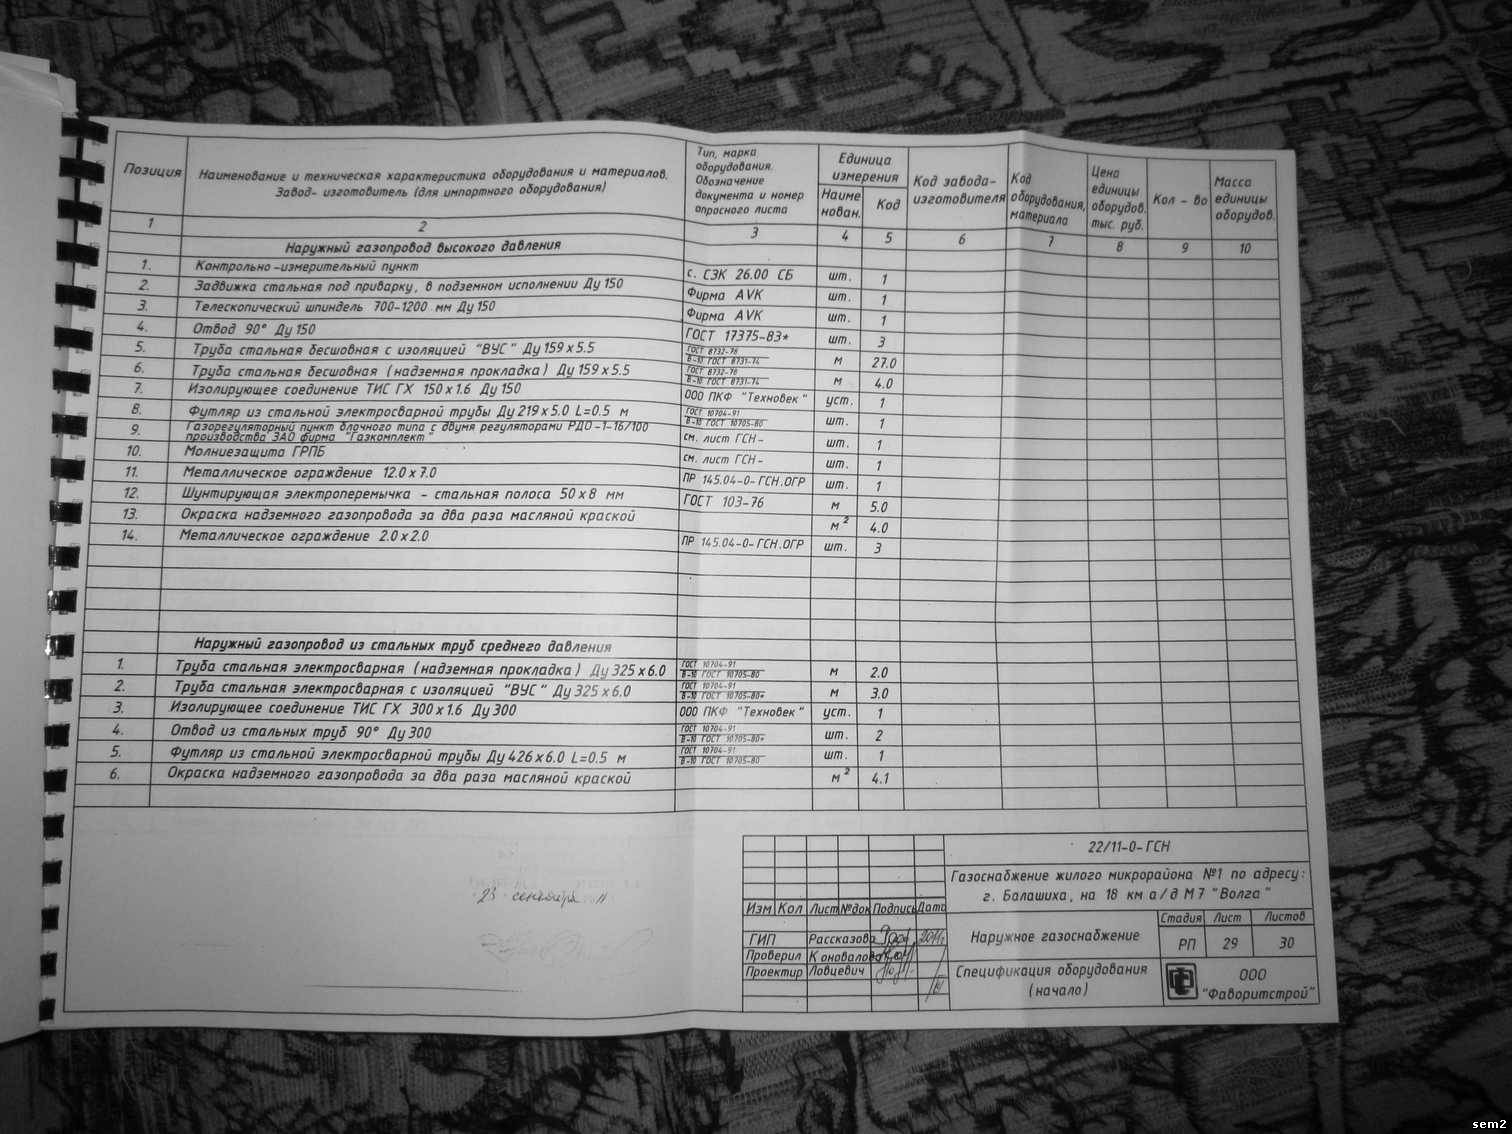 Позиция
Наименование и техническая характеристика оборудования и материалов.
Завод- изготовитель (для импортного оборудования)
Тип, марка
оборудования.
Обозначение
документа и номер
опросного листа
Единица
измерения
Наиме
нован.
Код
Код завода-
изготовителя
Код
оборудования,
материала
Цена
единицы
оборудов.
тыс. руб.
Кол - во
Масса
единицы
оборудов.
1 2 3 4 5 6 7 8 9 10
Наружный газопровод высокого давления
1. Контрольно-измерительный пункт с. СЗК 26.00 СБ шт. 1
2. Задвижка стальная под приварку, в подземном исполнении Ду 150 Фирма AVK шт. 1
3. Телескопический шпиндель 700-1200 мм Ду 150 Фирма AVK шт. 1
4. Отвод 90° Ду 150 ГОСТ 17375-83* шт. 3
5. Труба стальная бесшовная с изоляцией "ВУС" Ду 159 х 5.5 ГОСТ 8732-78 В-10 ГОСТ 8731-74 м 27.0
6. Труба стальная бесшовная (надземная прокладка) Ду 159 х 5.5 ГОСТ 8732-78 В-10 ГОСТ 8731-74 м 4.0
7. Изолирующее соединение ТИС ГХ 150 х 1.6 Ду 150 ООО ПКФ "Техновек" уст. 1
8. Футляр из стальной электросварной трубы Ду 219 х 5.0 L=0.5 м ГОСТ 10704-91 В-10 ГОСТ 10705-80 шт. 1
9. Газорегуляторный пункт блочного типа с двумя регуляторами РДО-1-16/100
производства ЗАО фирма "Газкомплект" см. лист ГСН- шт. 1
10. Молниезащита ГРПБ см. лист ГСН- шт. 1
11. Металлическое ограждение 12.0 х 7.0 ПР 145.04-0-ГСН.ОГР шт. 1
12. Шунтирующая электроперемычка - стальная полоса 50 х 8 мм ГОСТ 103-76 м 5.0
13. Окраска надземного газопровода за два раза масляной краской м 2 4.0
14. Металлическое ограждение 2.0 х 2.0 ПР 145.04-0-ГСН.ОГР шт. 3
Наружный газопровод из стальных труб среднего давления
1. Труба стальная электросварная (надземная прокладка) Ду 325 х 6.0 ГОСТ 10704-91 В-10 ГОСТ 10705-80 м 2.0
2. Труба стальная электросварная с изоляцией "ВУС" Ду 325 х 6.0 ГОСТ 10704-91 В-10 ГОСТ 10705-80* м 3.0
3. Изолирующее соединение ТИС ГХ 300 х 1.6 Ду 300 ООО ПКФ "Техновек" уст. 1
4. Отвод из стальных труб 90° Ду 300 ГОСТ 10704-91 В-10 ГОСТ 10705-80* шт. 2
5. Футляр из стальной электросварной трубы Ду 426 х 6.0 L=0.5 м ГОСТ 10704-91 В-10 ГОСТ 10705-80 шт. 1
6. Окраска надземного газопровода за два раза масляной краской м 2 4.1
23 сентября 11
22/11-0-ГСН
Газоснабжение жилого микрорайона №1 по адресу:
г. Балашиха, на 18 км а/д М7 "Волга"
Изм Кол Лист №док Подпись Дата
ГИП Рассказова 2011г.
Проверил Коновалова
Проектир Ловцевич
Наружное газоснабжение
Стадия Лист Листов
РП 29 30
Спецификация оборудования
(начало)
ООО
"Фаворитстрой"
sem2